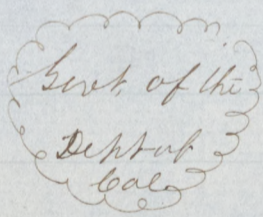 Govt. of the
Dept of
Cal.